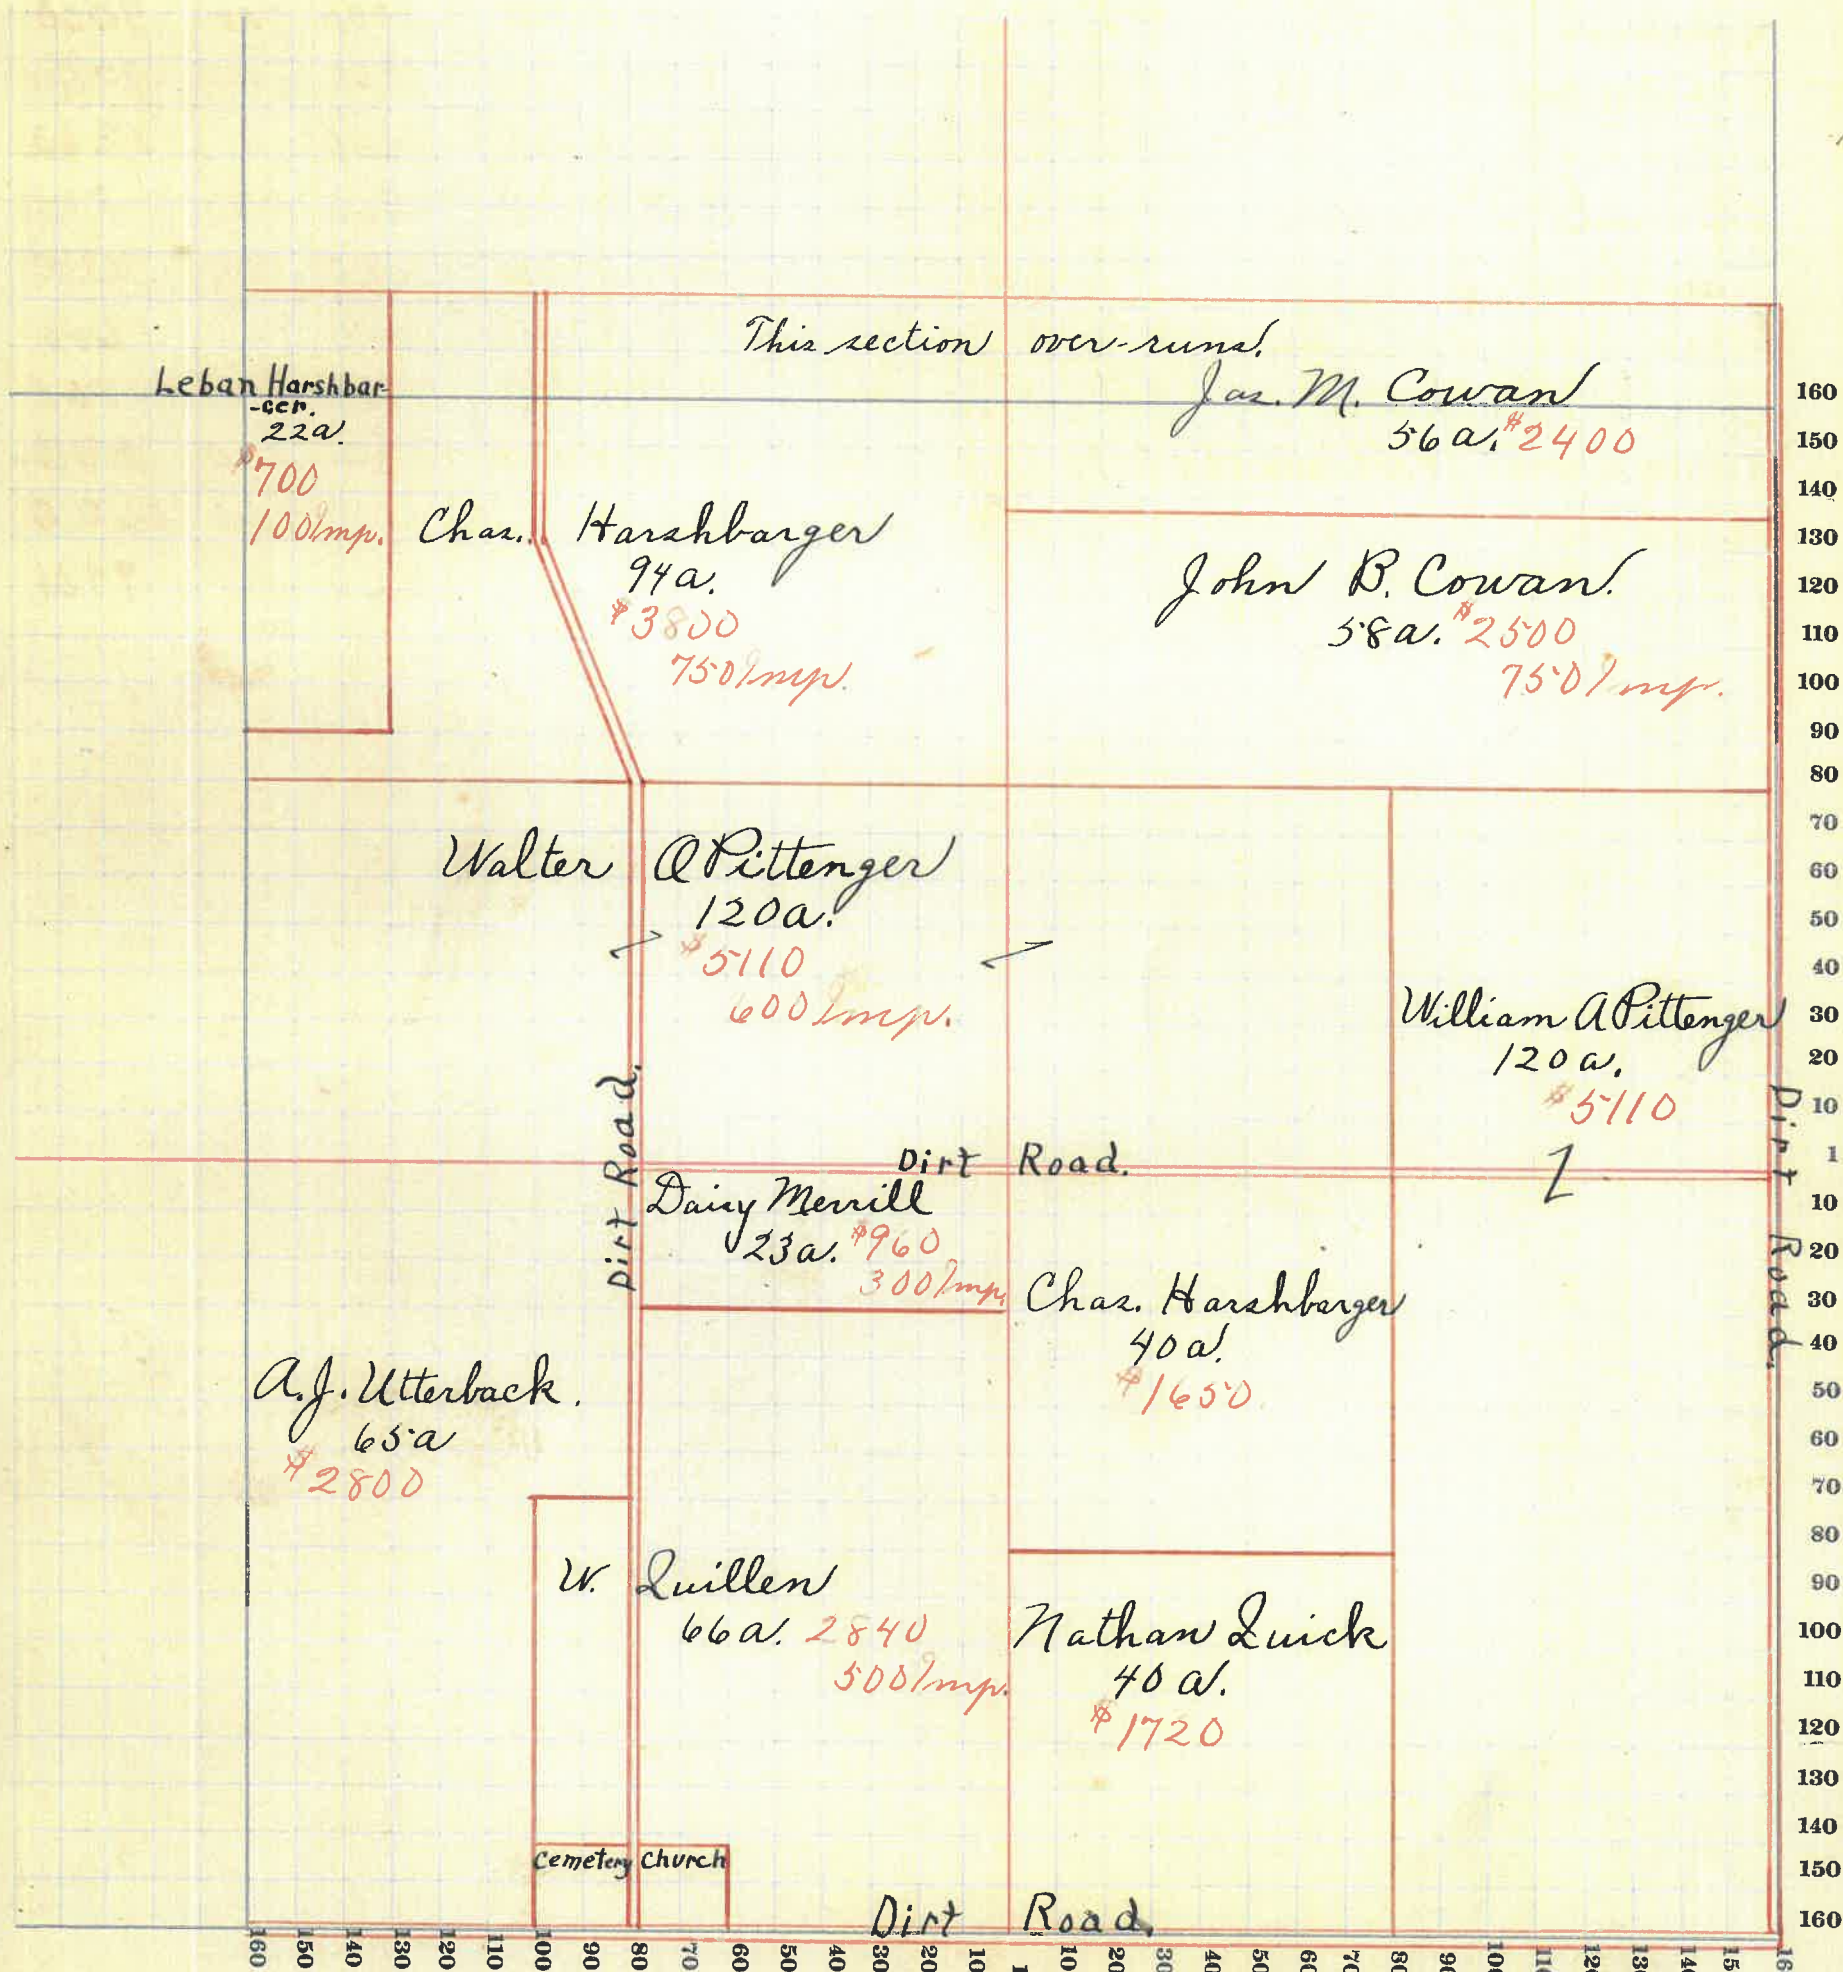 This section over-runs.
Leban Harshbar-
-ger.
22a.
$700
100 Imp.
Chas. Harshbarger
94a.
$3800
750 Imp.
Jas. M. Cowan
56a. $2400
John B. Cowan.
58a. $2500
750 Imp.
Walter O Pittenger
120a.
$5110
600 Imp.
William A Pittenger
120a.
$5110
Dirt Road.
Dirt Road.
Dirt Road.
Daisy Merrill
23a. $960
300 Imp.
Chas. Harshbarger
40a.
$1650
A. J. Utterback.
65a
$2800
W. Quillen
66a. 2840
500 Imp.
Nathan Quick
40a.
$1720
Cemetery Church
Dirt Road.
160
150
140
130
120
110
100
90
80
70
60
50
40
30
20
10
1
10
20
30
40
50
60
70
80
90
100
110
120
130
140
150
160
160 150 140 130 120 110 100 90 80 70 60 50 40 30 20 10 1 10 20 30 40 50 60 70 80 90 100 110 120 130 140 15 16